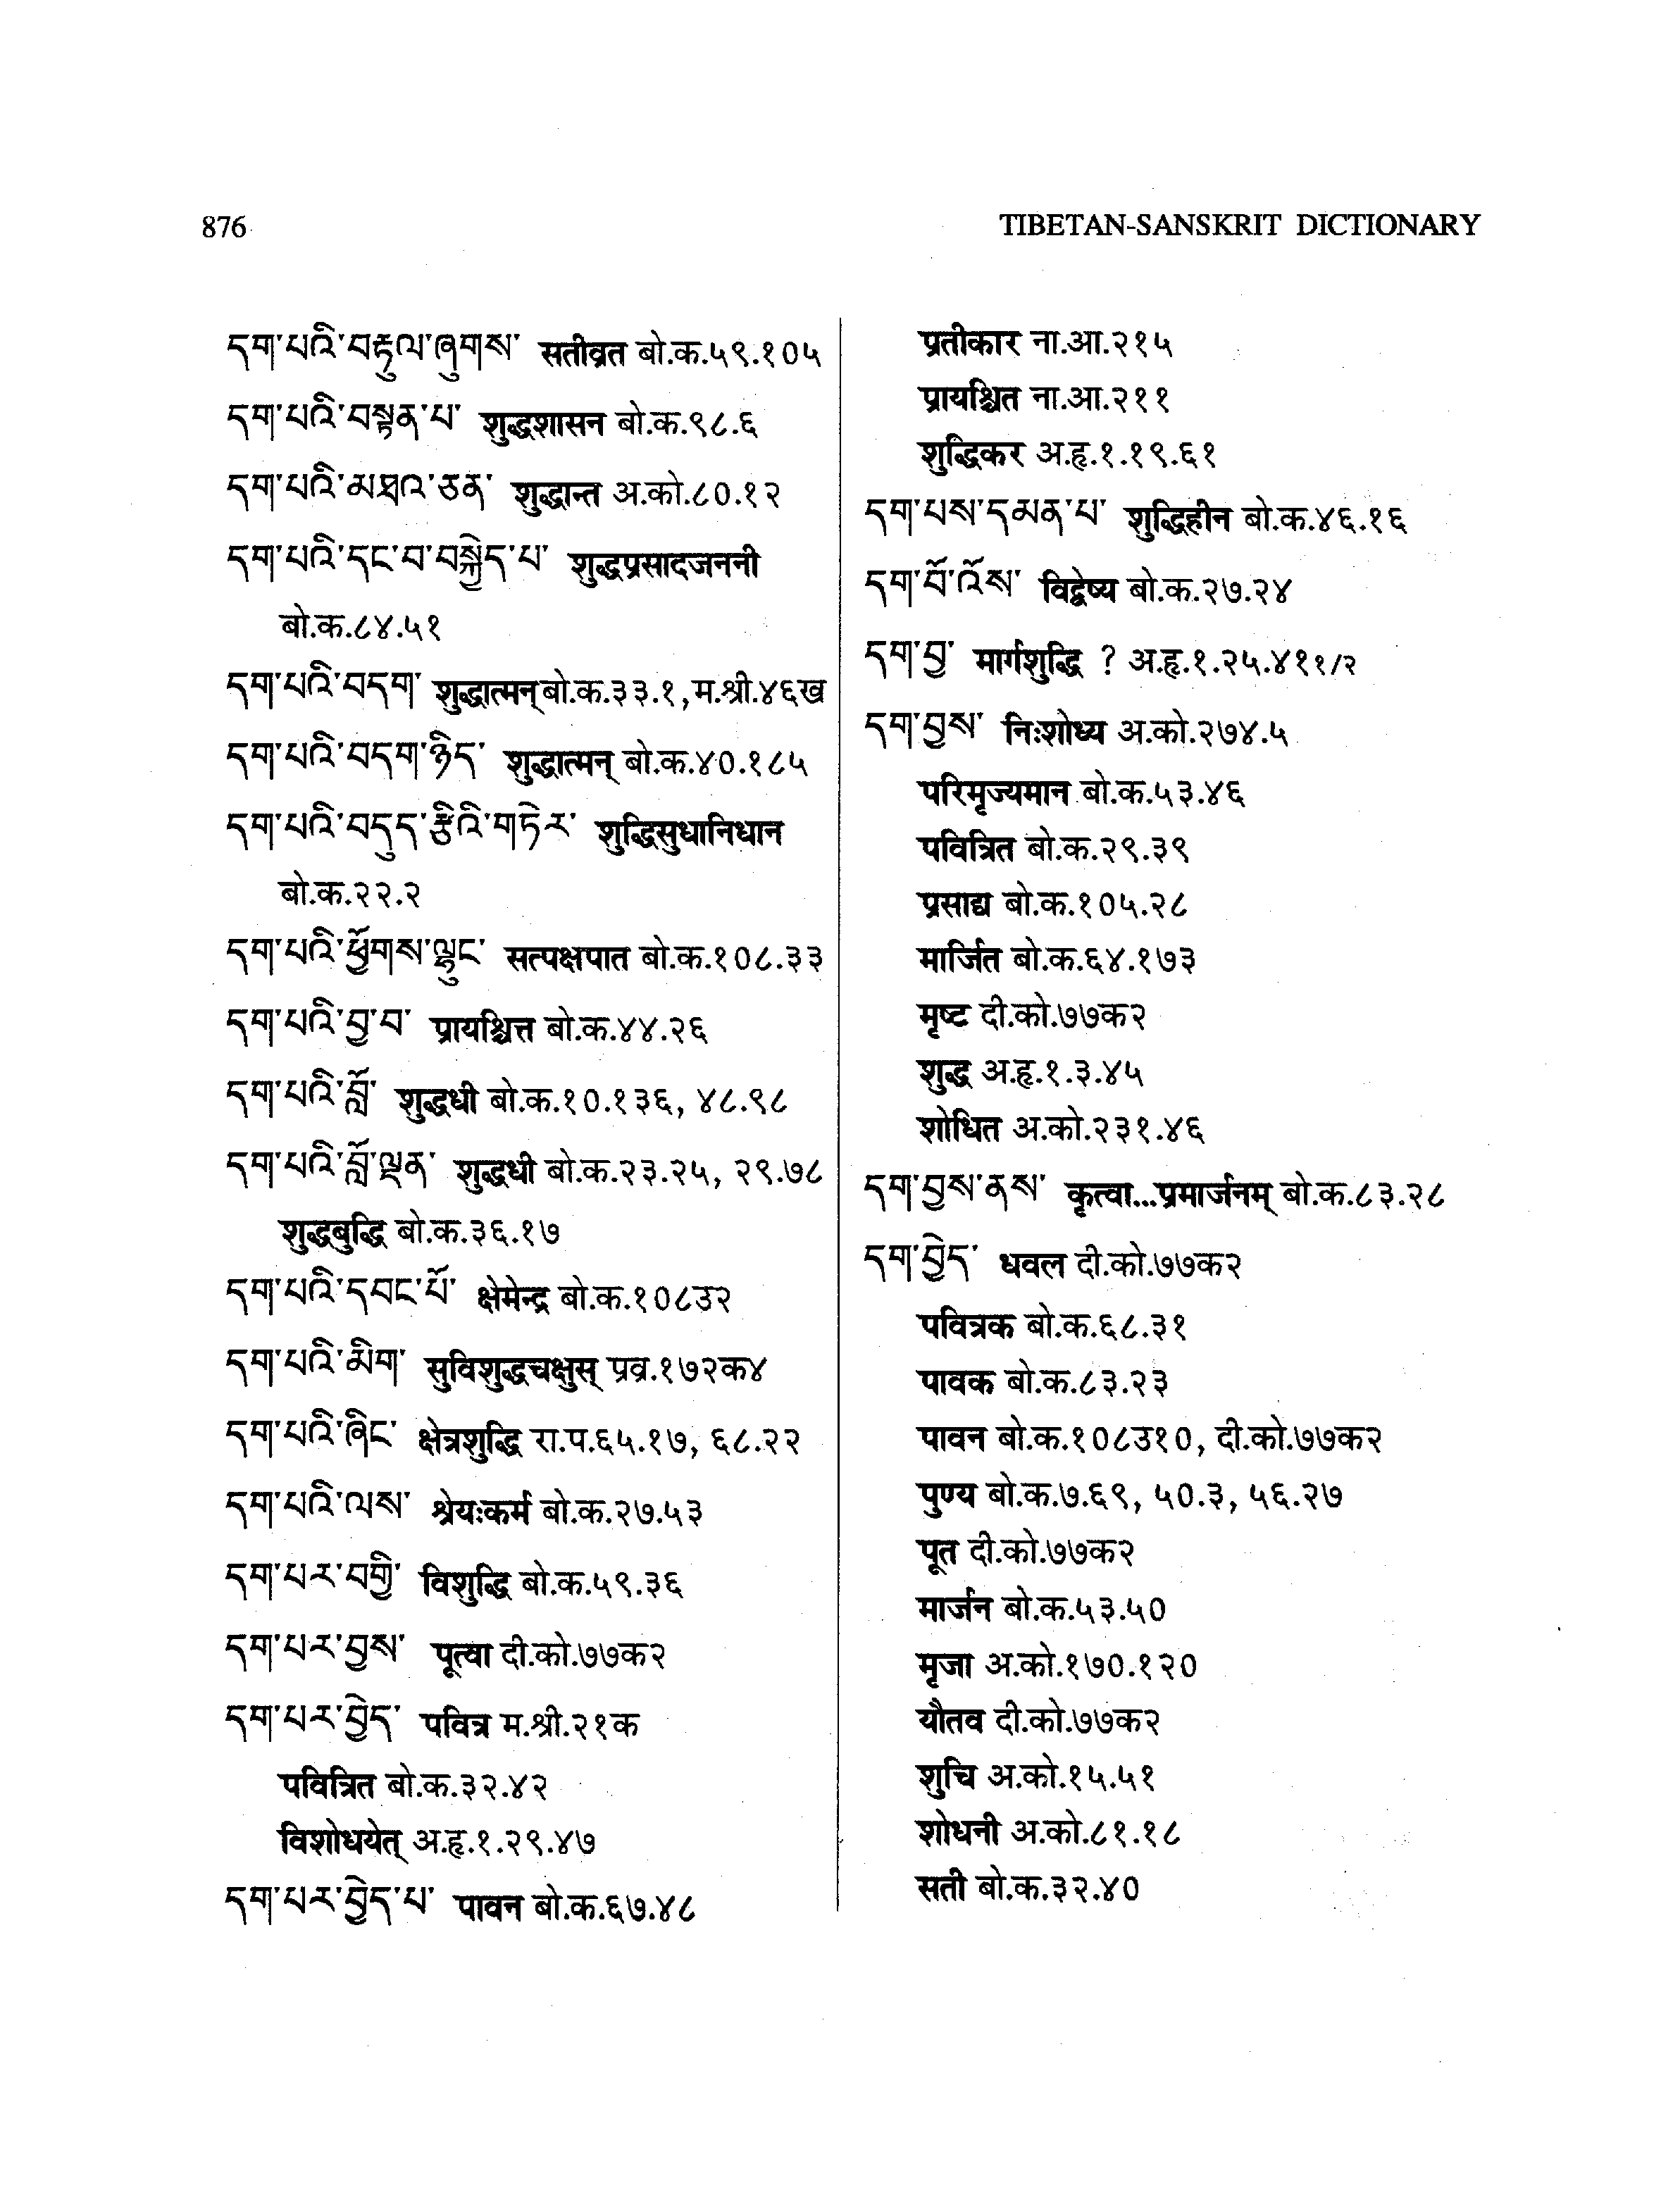 876
TIBETAN-SANSKRIT DICTIONARY
དག་པའི་བརྟུལ་ཞུགས་ सतीव्रत बो.क.५९.१०५
དག་པའི་བསྟན་པ་ शुद्धशासन बो.क.९८.६
དག་པའི་མཐའ་ཅན་ शुद्धान्त अ.को.८०.१२
དག་པའི་དང་བ་བསྐྱེད་པ་ शुद्धप्रसादजननी
बो.क.८४.५१
དག་པའི་བདག་ शुद्धात्मन् बो.क.३३.१,म.श्री.४६ख
དག་པའི་བདག་ཉིད་ शुद्धात्मन् बो.क.४०.१८५
དག་པའི་བདུད་རྩིའི་གཏེར་ शुद्धिसुधानिधान
बो.क.२२.२
དག་པའི་ཕྱོགས་ལྷུང་ सत्पक्षपात बो.क.१०८.३३
དག་པའི་བྱ་བ་ प्रायश्चित्त बो.क.४४.२६
དག་པའི་བློ་ शुद्धधी बो.क.१०.१३६, ४८.९८
དག་པའི་བློ་ལྡན་ शुद्धधी बो.क.२३.२५, २९.७८
शुद्धबुद्धि बो.क.३६.१७
དག་པའི་དབང་པོ་ क्षेमेन्द्र बो.क.१०८उ२
དག་པའི་མིག་ सुविशुद्धचक्षुस् प्रव्र.१७२क४
དག་པའི་ཞིང་ क्षेत्रशुद्धि रा.प.६५.१७, ६८.२२
དག་པའི་ལས་ श्रेयःकर्म बो.क.२७.५३
དག་པར་བགྱི་ विशुद्धि बो.क.५९.३६
དག་པར་བྱས་ पूत्वा दी.को.७७क२
དག་པར་བྱེད་ पवित्र म.श्री.२१क
पवित्रित बो.क.३२.४२
विशोधयेत् अ.हृ.१.२९.४७
དག་པར་བྱེད་པ་ पावन बो.क.६७.४८
प्रतीकार ना.आ.२१५
प्रायश्चित ना.आ.२११
शुद्धिकर अ.हृ.१.१९.६१
དག་པས་དམན་པ་ शुद्धिहीन बो.क.४६.१६
དག་བོ་འོས་ विद्वेष्य बो.क.२७.२४
དག་བྱ་ मार्गशुद्धि ? अ.हृ.१.२५.४११/२
དག་བྱས་ निःशोध्य अ.को.२७४.५
परिमृज्यमान बो.क.५३.४६
पवित्रित बो.क.२९.३९
प्रसाद्य बो.क.१०५.२८
मार्जित बो.क.६४.१७३
मृष्ट दी.को.७७क२
शुद्ध अ.हृ.१.३.४५
शोधित अ.को.२३१.४६
དག་བྱས་ནས་ कृत्वा...प्रमार्जनम् बो.क.८३.२८
དག་བྱེད་ धवल दी.को.७७क२
पवित्रक बो.क.६८.३१
पावक बो.क.८३.२३
पावन बो.क.१०८उ१०, दी.को.७७क२
पुण्य बो.क.७.६९, ५०.३, ५६.२७
पूत दी.को.७७क२
मार्जन बो.क.५३.५०
मृजा अ.को.१७०.१२०
यौतव दी.को.७७क२
शुचि अ.को.१५.५१
शोधनी अ.को.८१.१८
सती बो.क.३२.४०